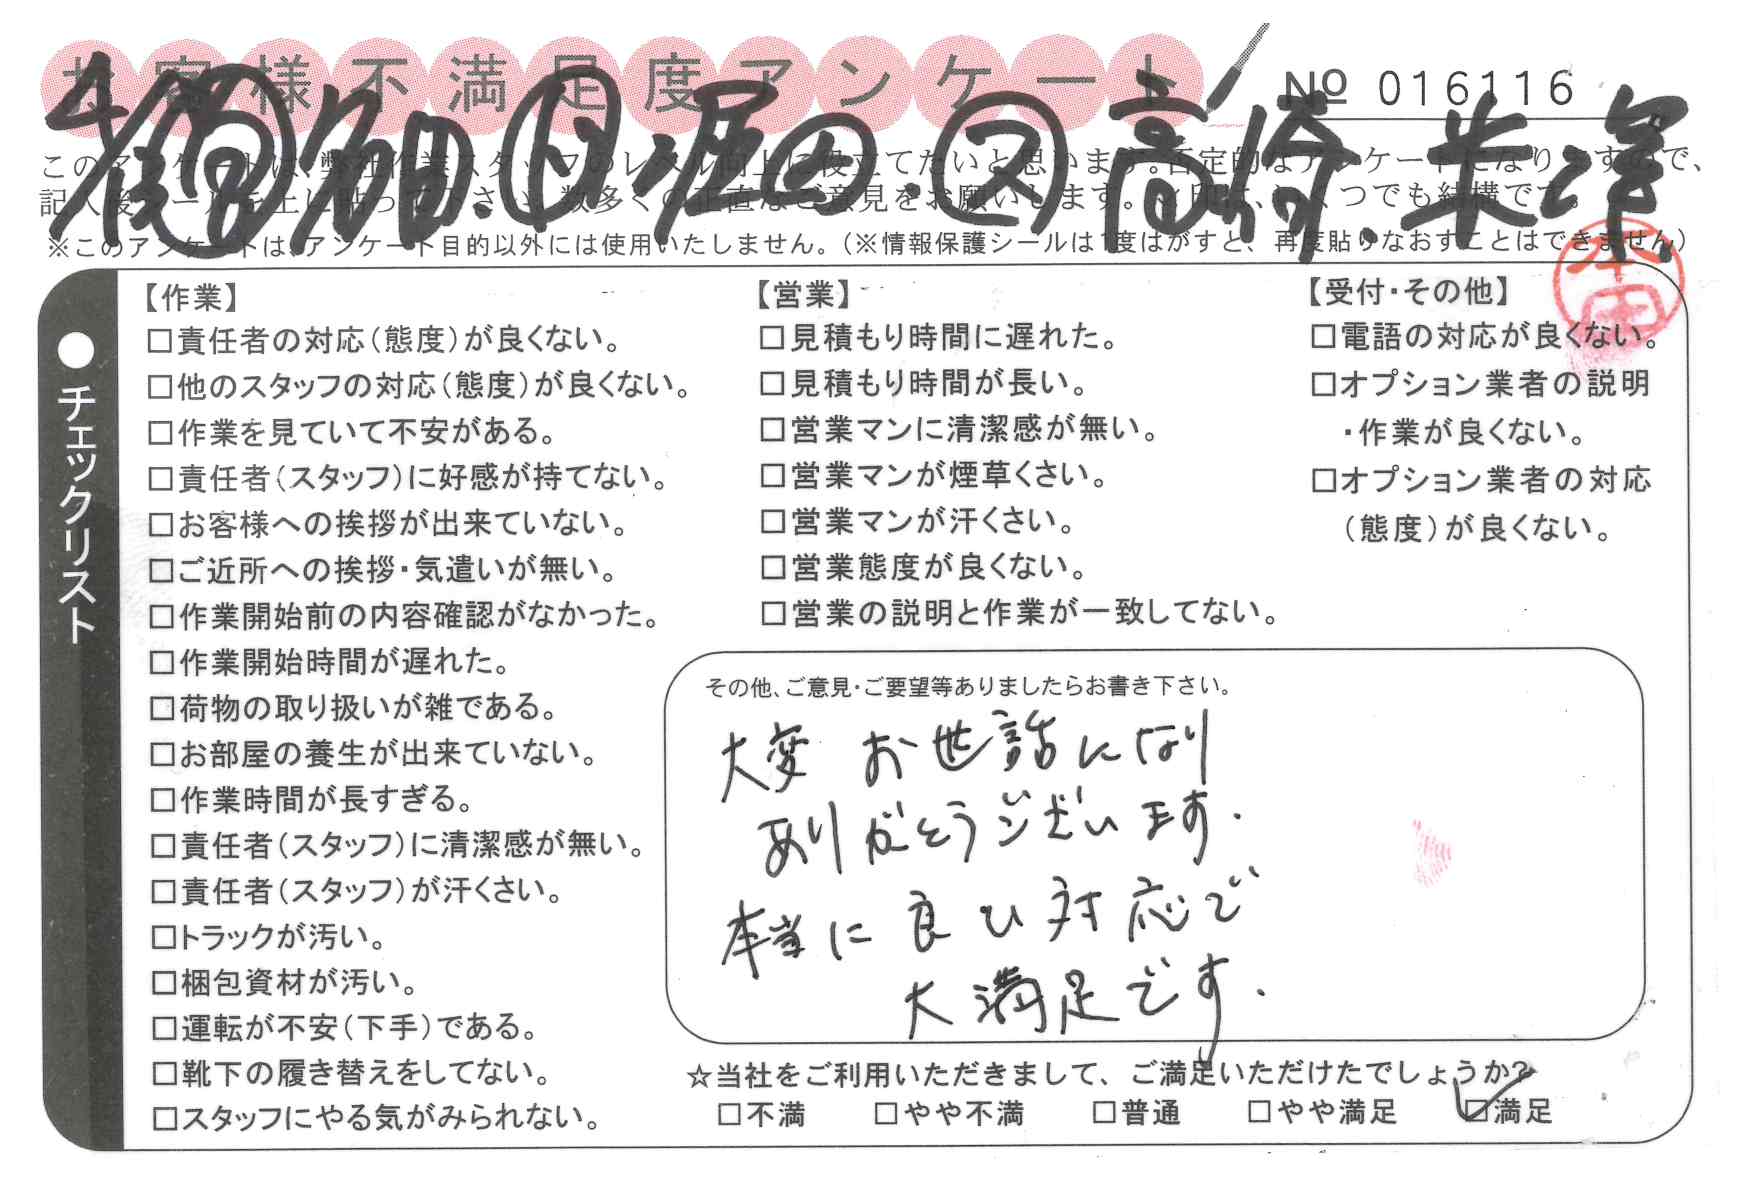 お客様不満足度アンケート
№ 016116
このアンケートは、弊社作業スタッフのレベル向上に役立てたいと思います。否定的なアンケートになりますので、
記入後シールを上に貼って下さい。数多くの正直なご意見をお願いします。レ印は、いくつでも結構です。
※このアンケートは、アンケート目的以外には使用いたしません。(※情報保護シールは1度はがすと、再度貼りなおすことはできません)
高崎.米澤
本田
●チェックリスト
【作業】
□責任者の対応(態度)が良くない。
□他のスタッフの対応(態度)が良くない。
□作業を見ていて不安がある。
□責任者(スタッフ)に好感が持てない。
□お客様への挨拶が出来ていない。
□ご近所への挨拶・気遣いが無い。
□作業開始前の内容確認がなかった。
□作業開始時間が遅れた。
□荷物の取り扱いが雑である。
□お部屋の養生が出来ていない。
□作業時間が長すぎる。
□責任者(スタッフ)に清潔感が無い。
□責任者(スタッフ)が汗くさい。
□トラックが汚い。
□梱包資材が汚い。
□運転が不安(下手)である。
□靴下の履き替えをしてない。
□スタッフにやる気がみられない。
【営業】
□見積もり時間に遅れた。
□見積もり時間が長い。
□営業マンに清潔感が無い。
□営業マンが煙草くさい。
□営業マンが汗くさい。
□営業態度が良くない。
□営業の説明と作業が一致してない。
【受付・その他】
□電話の対応が良くない。
□オプション業者の説明
・作業が良くない。
□オプション業者の対応
(態度)が良くない。
その他、ご意見・ご要望等ありましたらお書き下さい。
大変 お世話になり
ありがとうございます.
本当に良い対応で
大満足です.
☆当社をご利用いただきまして、ご満足いただけたでしょうか?
□不満 □やや不満 □普通 □やや満足 ☑満足